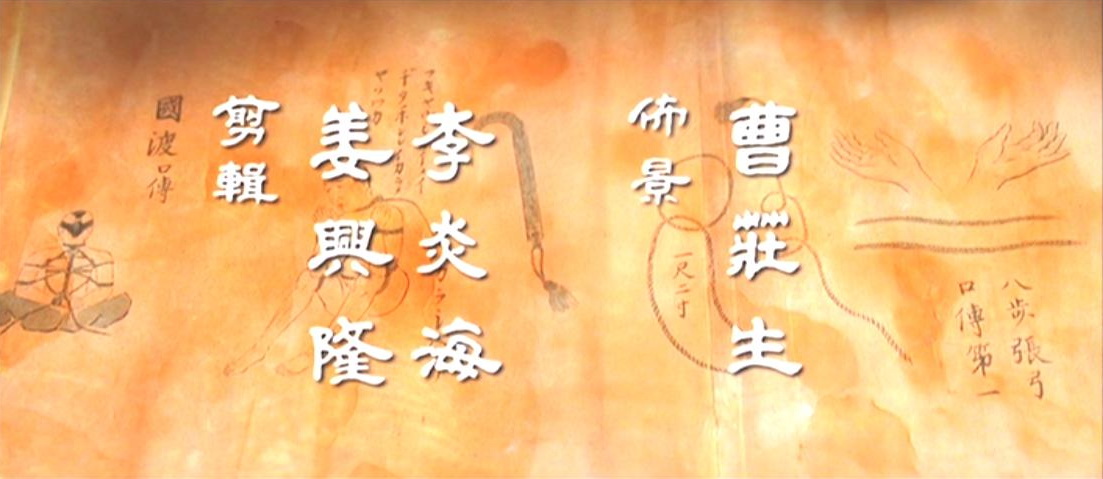 佈景
曹莊生
剪輯
李炎海
姜興隆
八步張弓
口傳第一
一尺二寸
國波口傳